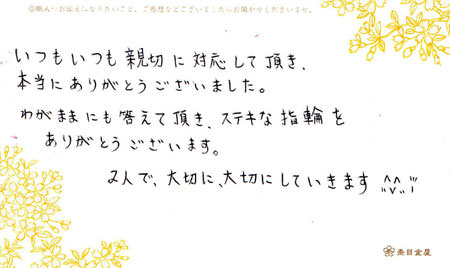 ⑤職人へお伝えになりたいこと、ご感想などございましたらお聞かせくださいませ。
いつもいつも親切に対応して頂き、
本当にありがとうございました。
わがままにも答えて頂き、ステキな指輪を
ありがとうございます。
2人で、大切に、大切にしていきます
杢目金屋